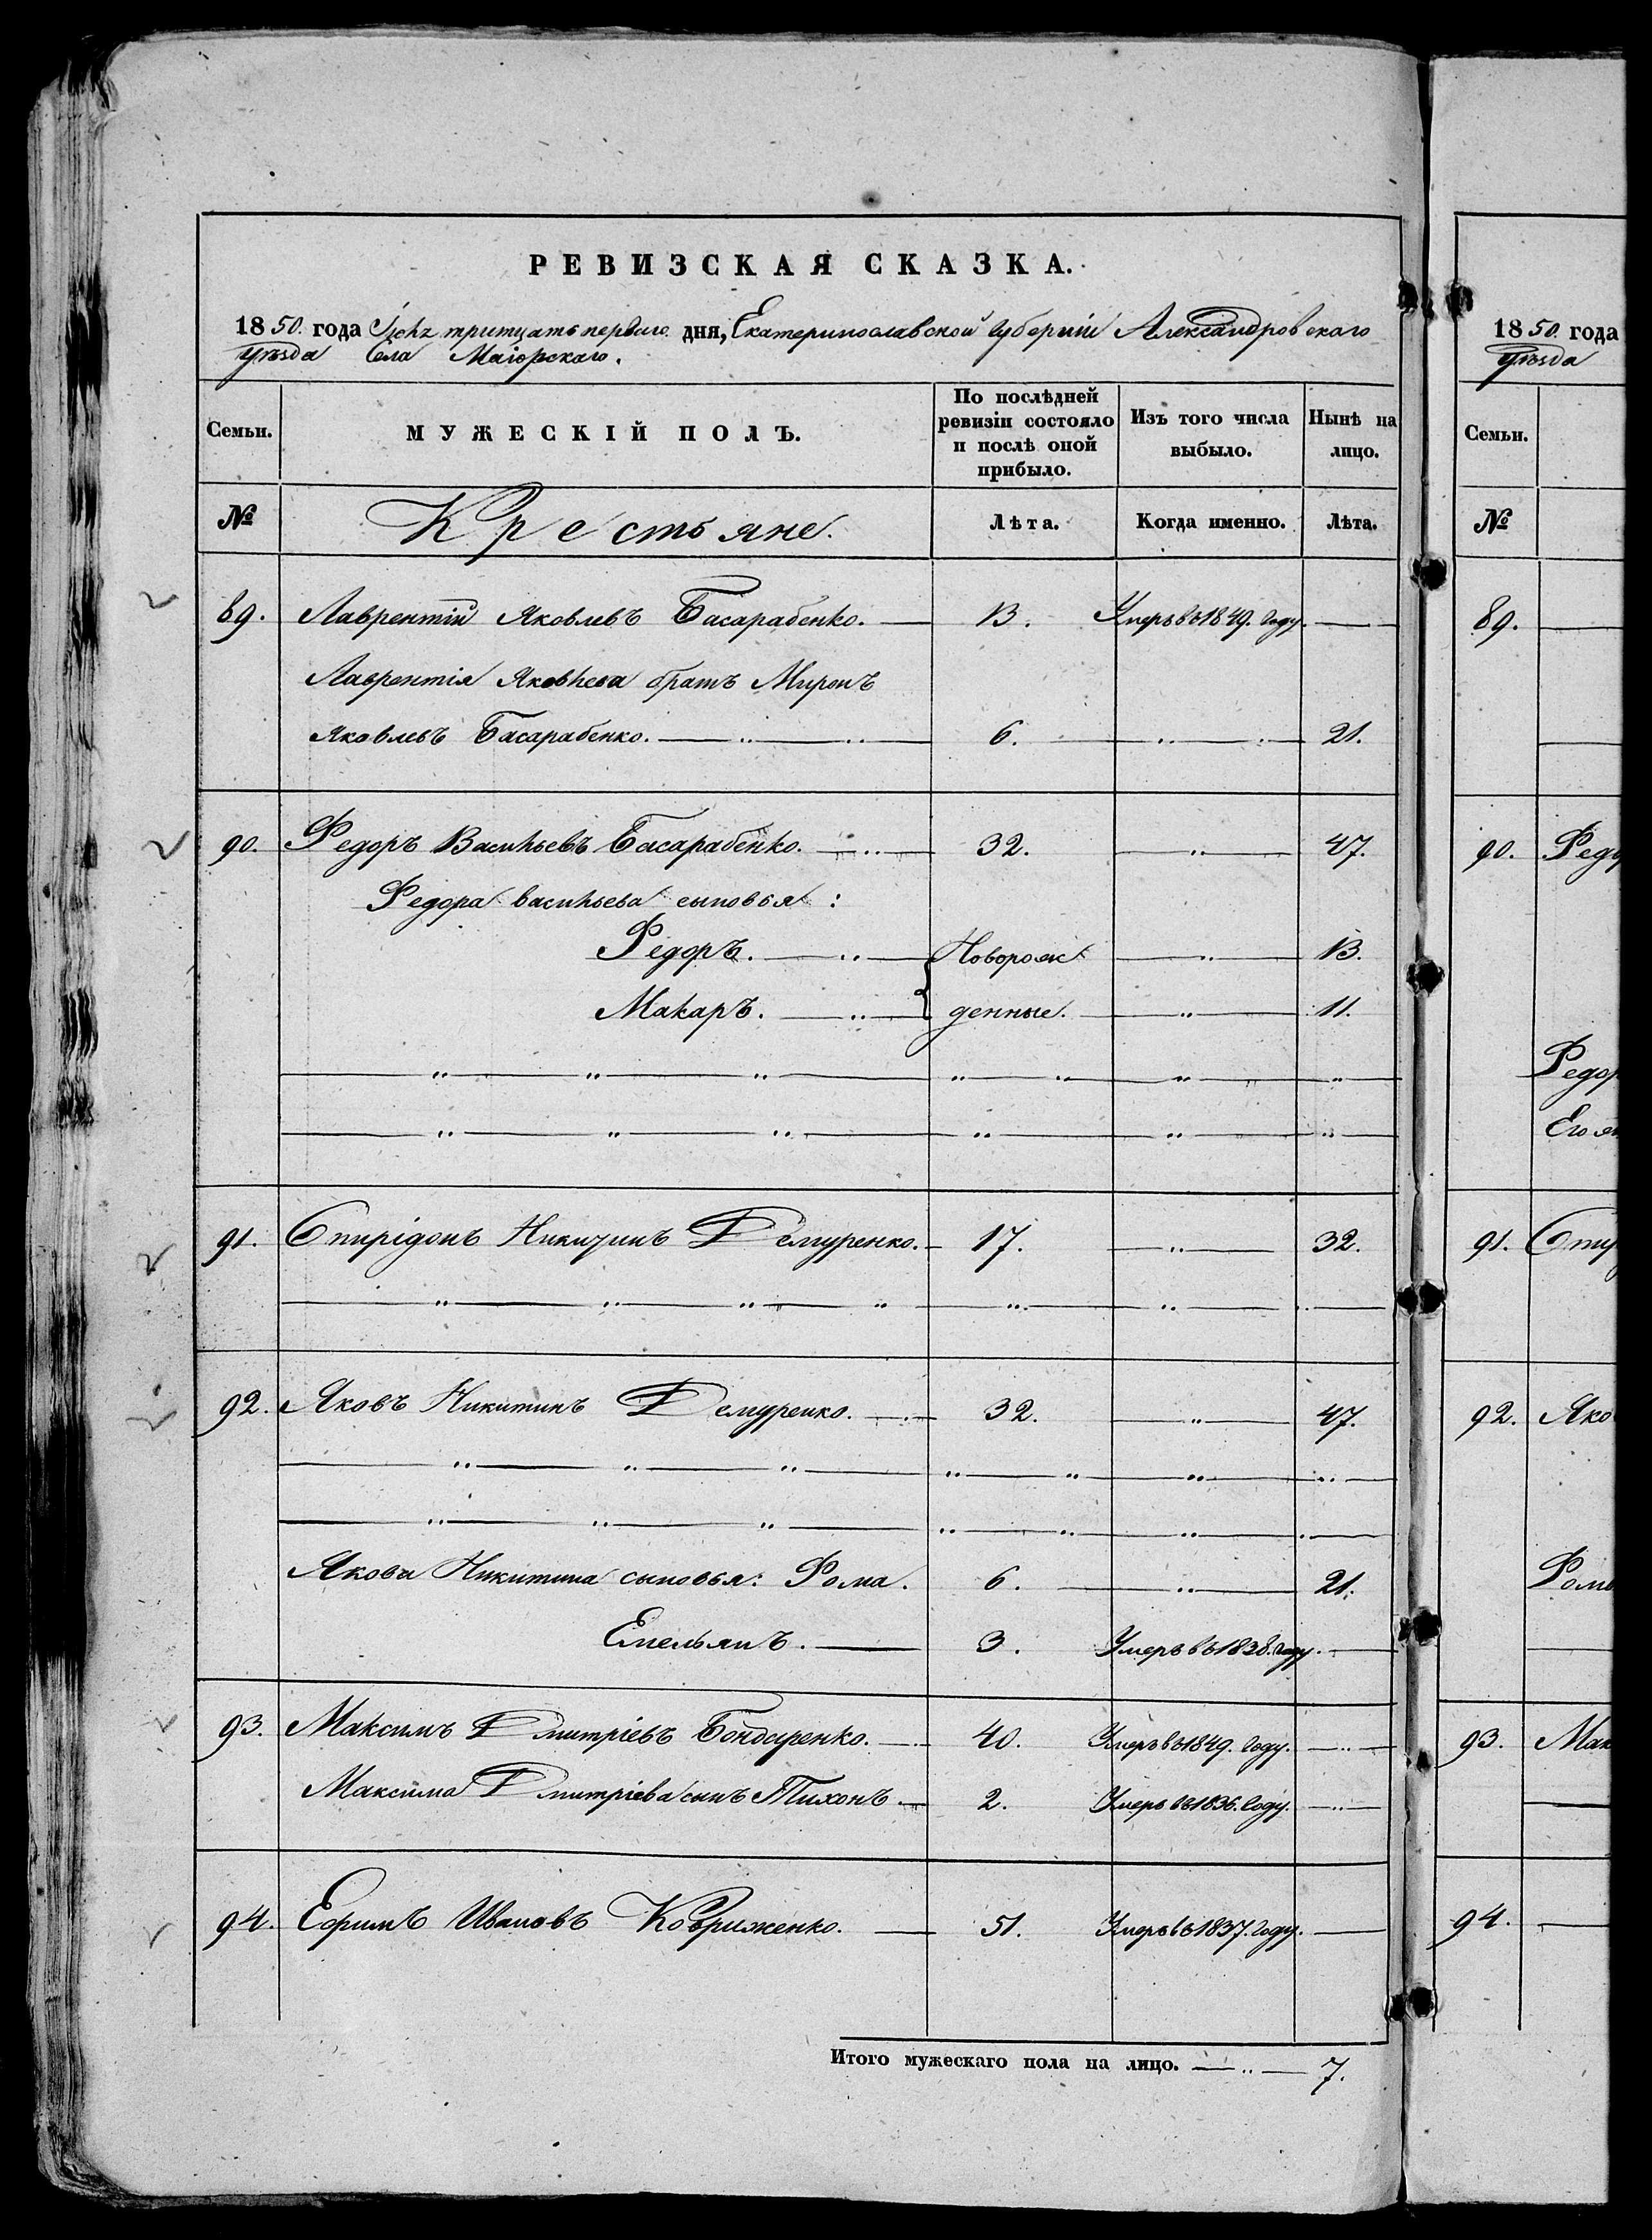 РЕВИЗСКАЯ СКАЗКА.
1850. года тритцать перваго дня, Екатеринославской губерніи Александровскаго
уѣзда Села Маіорскаго.
Семьи. МУЖЕСКІЙ ПОЛЪ. По послѣдней ревизіи состояло и послѣ оной прибыло. Изъ того числа выбыло. Нынѣ на лицо.
№ Крестьяне. Лѣта. Когда именно. Лѣта.
89. Лаврентій Яковлевъ Басарабенко. 13. Умеръ въ 1849. году.
Лаврентія Яковлева братъ Миронъ
Яковлевъ Басарабенко. 6. 21.
90. Федоръ Васильевъ Басарабенко. 32. 47.
Федора Васильева сыновья:
Федоръ. Новорож 13.
Макаръ. денные. 11.
91. Спирідонъ Никитинъ Демуренко. 17. 32.
92. Яковъ Никитинъ Демуренко. 32. 47.
Якова Никитина сыновья: Фома. 6. 21.
Емельянъ. 3. Умеръ въ 1838. году.
93. Максимъ Дмитріевъ Бондаренко. 40. Умеръ въ 1849. году.
Максима Дмитріева сынъ Тихонъ. 2. Умеръ въ 1836. году.
94. Ефимъ Ивановъ Ковриженко. 51. Умеръ въ 1837. году.
Итого мужескаго пола на лицо. 7.
1850. года
уѣзда
Семьи.
№
89.
90. Федо
Федор
Его
91. Спир
92. Яко
Фом
93. Мак
94.